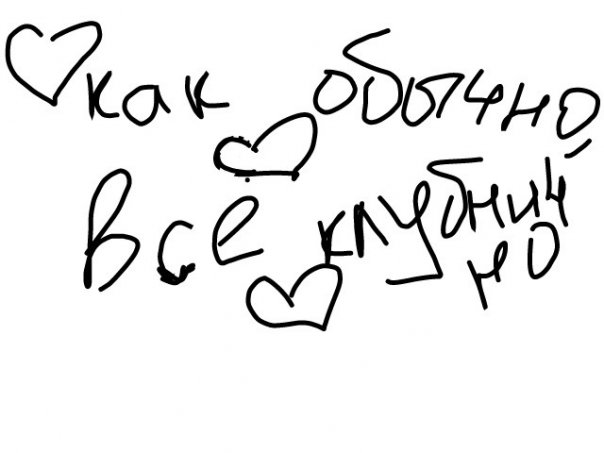 как обычно
все клубнич-
но